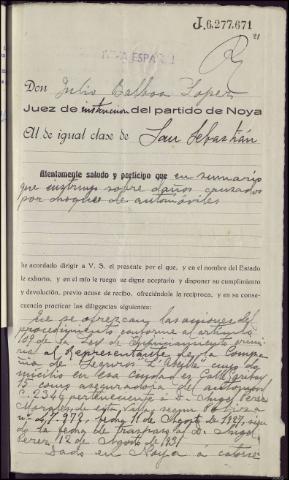 J.6.277.671
Don Julio Balboa Lopez
Juez de instrucción del partido de Noya
Al de igual clase de San Sebastián
Atentamente saludo y participo que en sumario
que instruyo sobre daños causados
por choque de automóviles
he acordado dirigir a V. S. el presente por el que, y en el nombre del Estado
le exhorto, y en el mío le ruego se digne aceptarlo y disponer su cumplimiento
y devolución, previo acuse de recibo, ofreciéndole la recíproca, y en su conse-
cuencia practicar las diligencias siguientes:
Que se ofrezcan las acciones del
procedimiento conforme al artículo
109 de la Ley de Enjuiciamiento
al Representante de la Compañía
de Seguros cuyo do-
micilio en esa ciudad es Calle
15 como aseguradora del automóvil
C. 2349 perteneciente a D. Angel Perez
de esta Villa, segun Póliza
nº fecha 11 de Agosto de 1927,
de la fecha de traspaso al D. Angel
Perez, 12 de Agosto de 1931
Dado en Noya a catorce